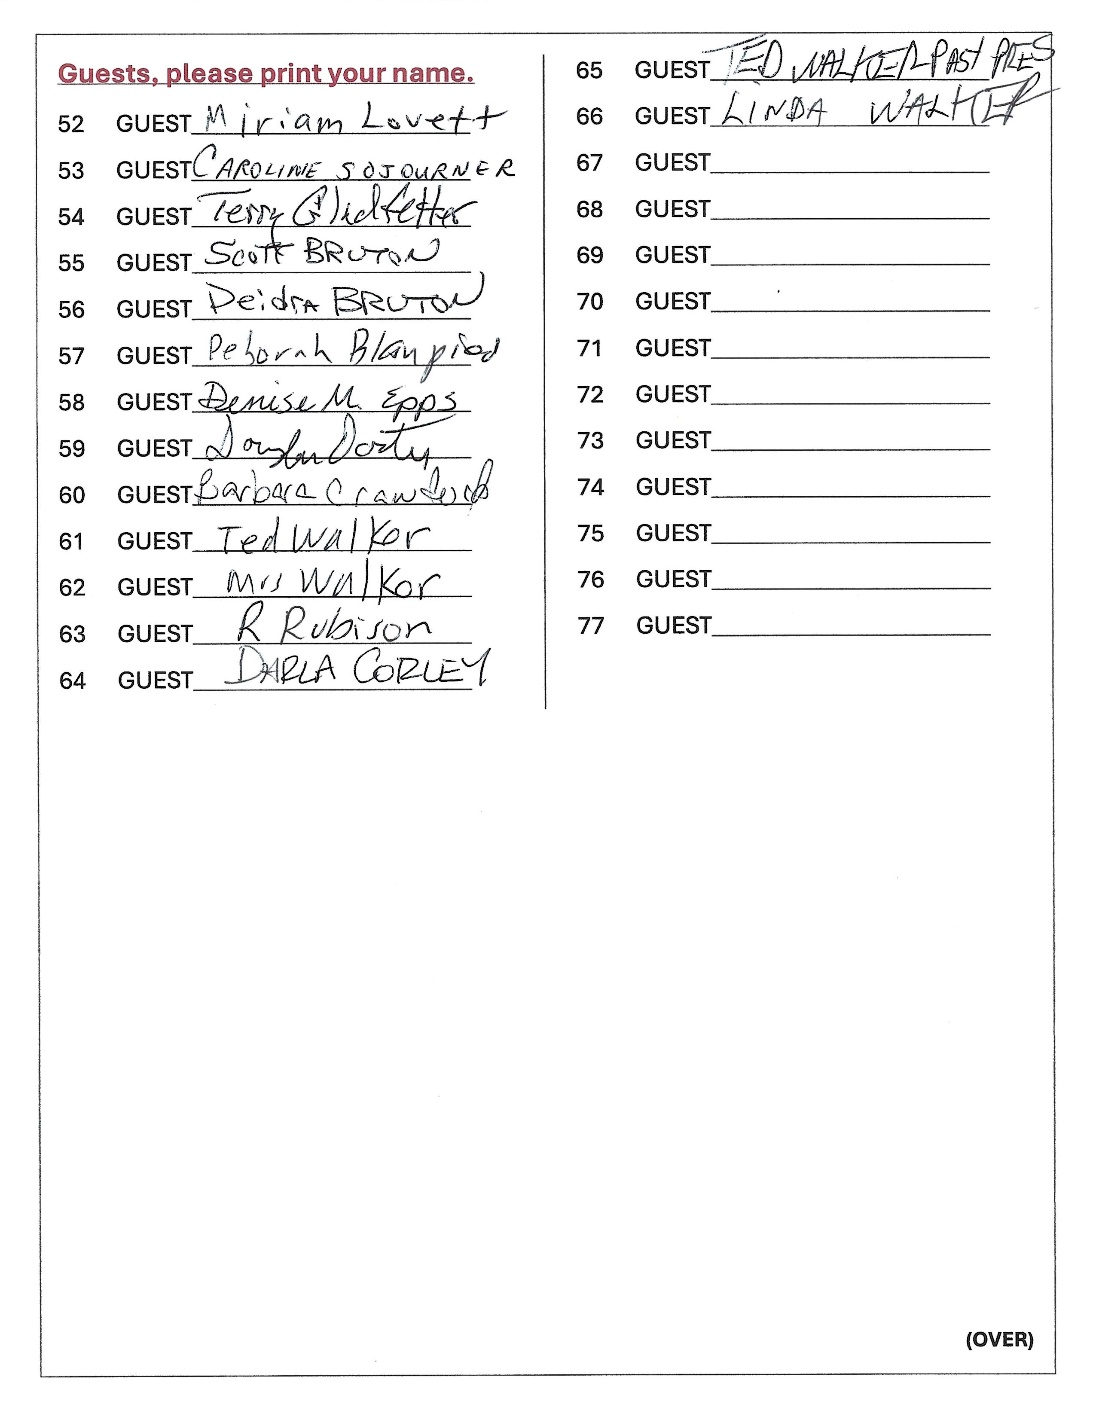 Guests, please print your name.
52 GUEST Miriam Lovett
53 GUEST CAROLINE SOJOURNER
54 GUEST Terry Glidfetter
55 GUEST Scott BRUTON
56 GUEST DeidrA BRUTON
57 GUEST Deborah Blanpied
58 GUEST Denise M. Epps
59 GUEST
60 GUEST Barbara Crawford
61 GUEST Ted Walkor
62 GUEST Mrs Walkor
63 GUEST R Rubison
64 GUEST DARLA CORLEY
65 GUEST TED WALKER PAST PRES
66 GUEST LINDA WALKER
67 GUEST
68 GUEST
69 GUEST
70 GUEST
71 GUEST
72 GUEST
73 GUEST
74 GUEST
75 GUEST
76 GUEST
77 GUEST
(OVER)